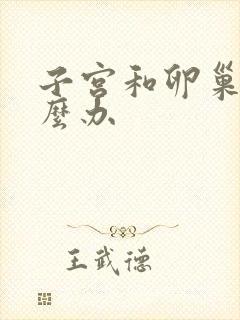 子宫和卵巢
麼办
王武德